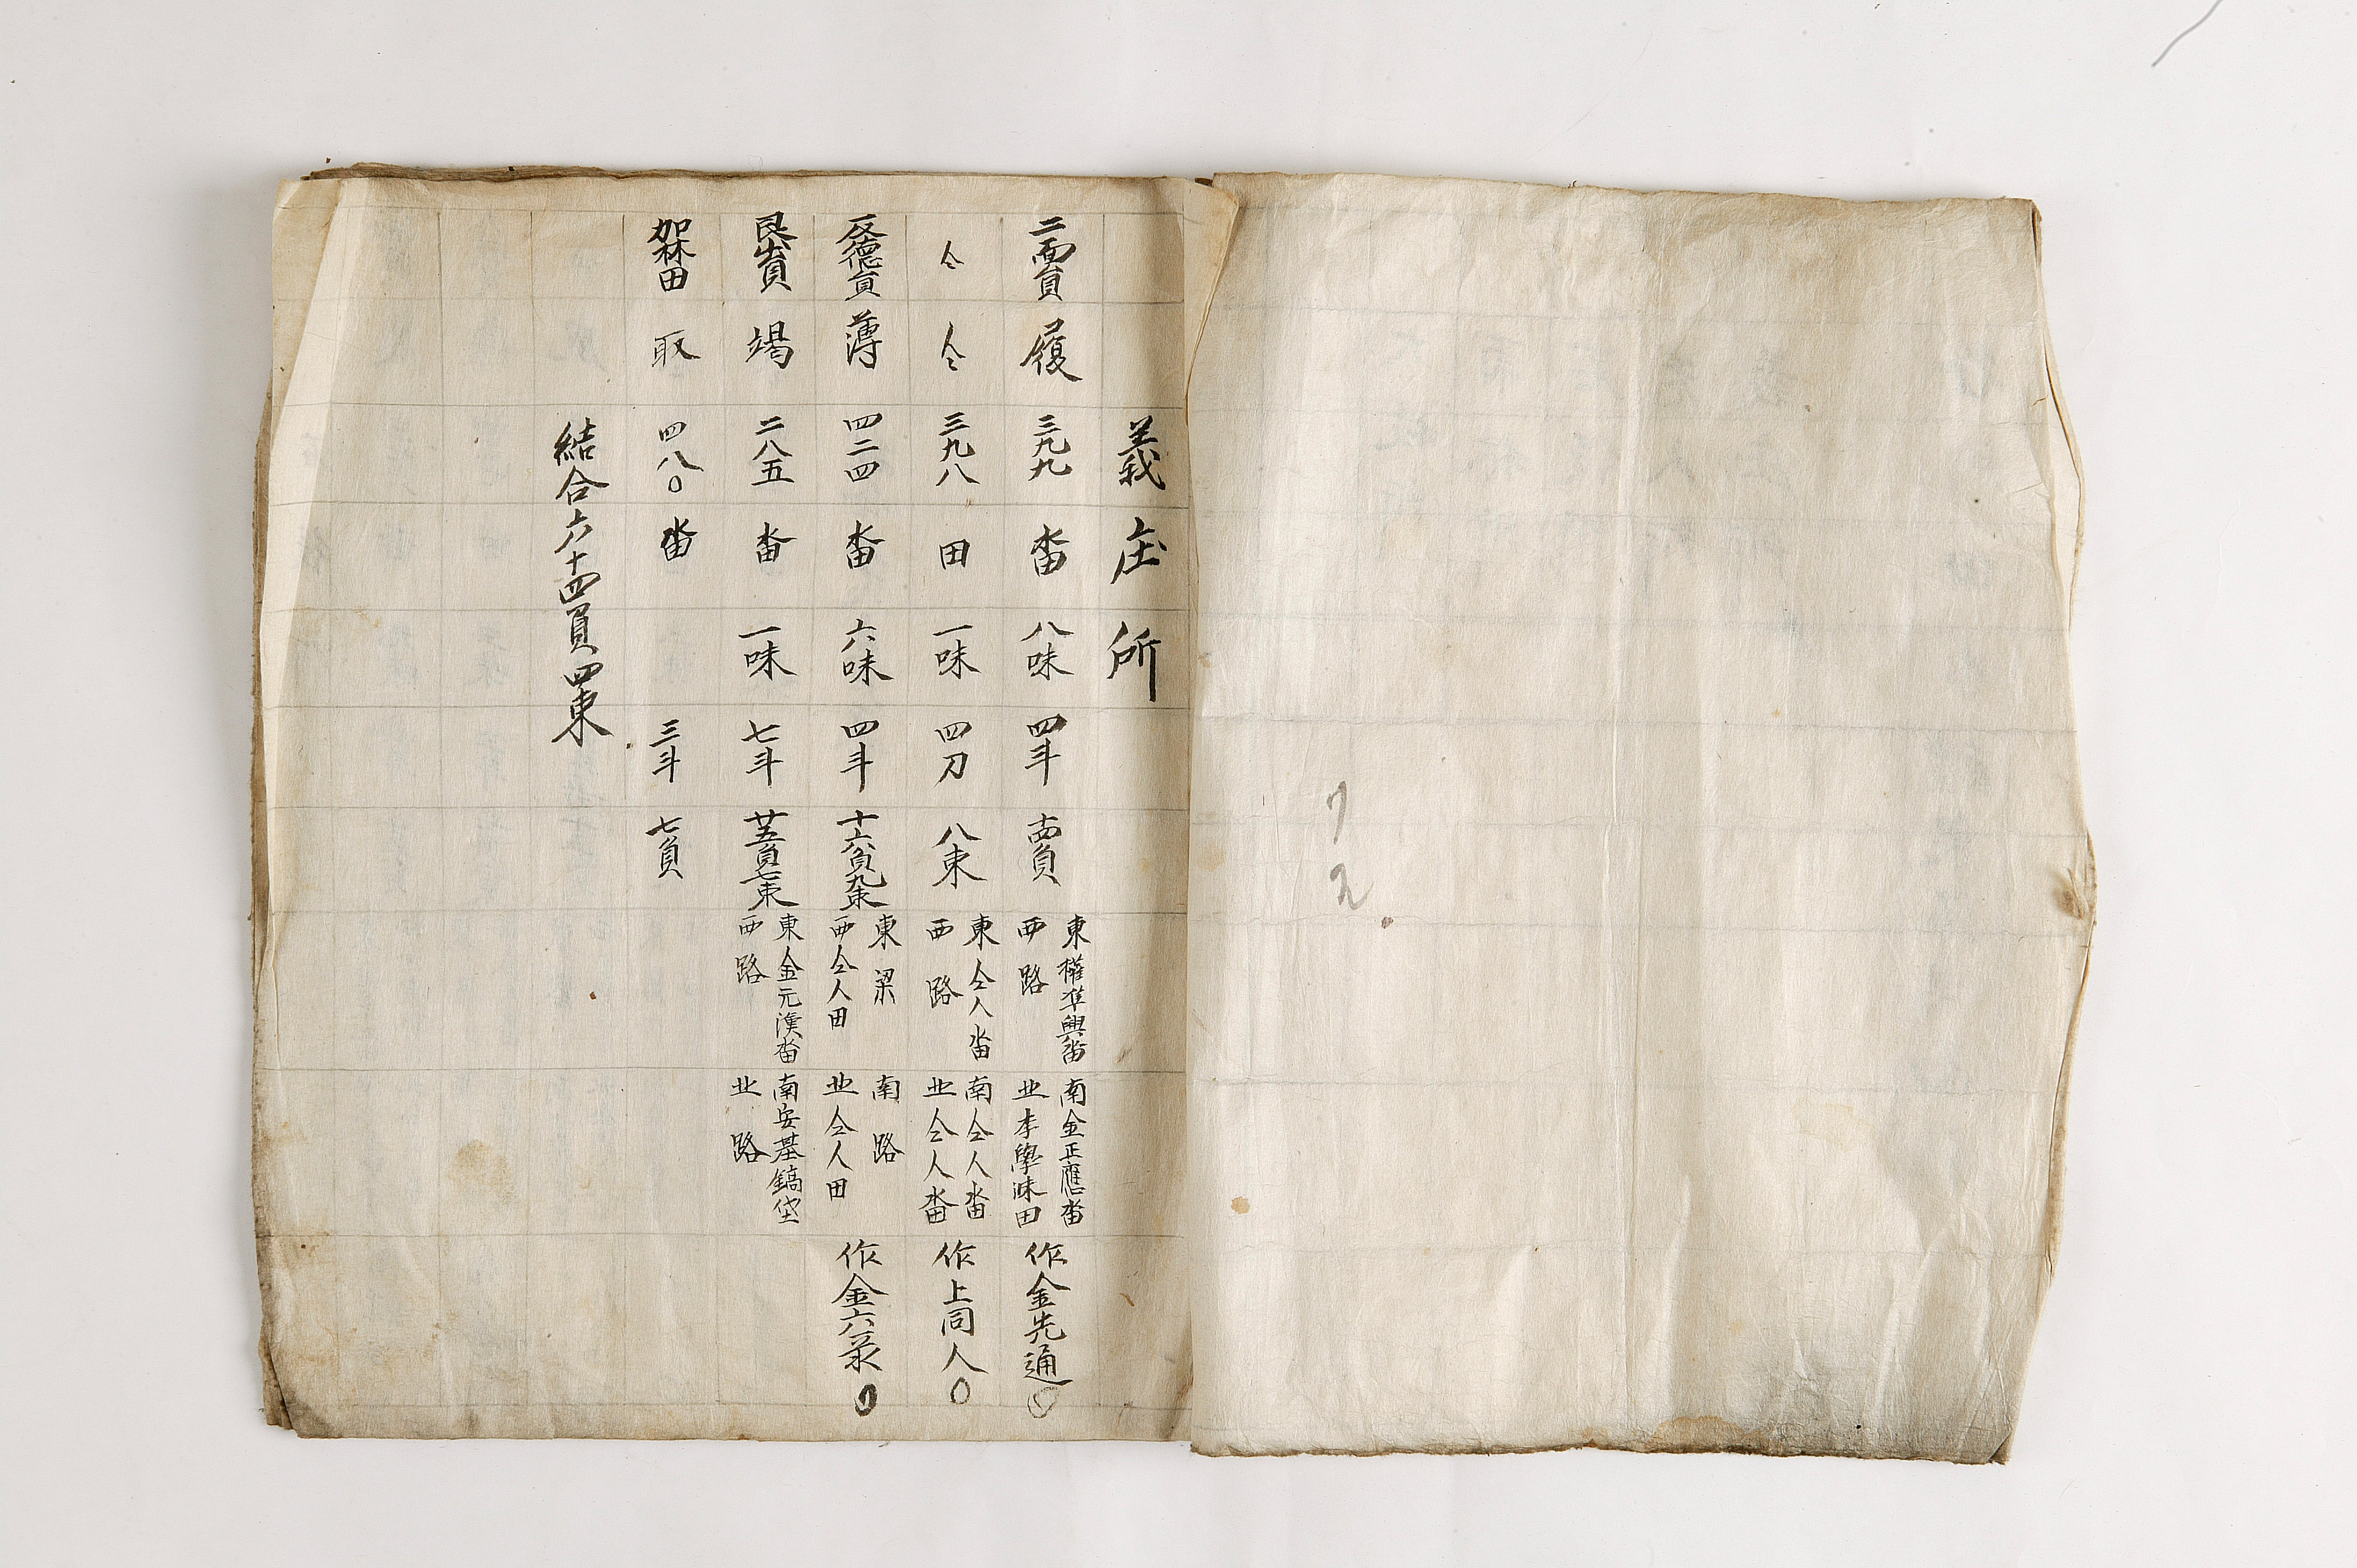 義庄所
二面員 履 三九九 畓 八味 四斗 十四負 東權準興畓 西路 南金正應畓 北李學洙田 作金先通
仝 仝 三九八 田 一味 四刀 八束 東仝人畓 西路 南仝人畓 北仝人畓 作上同人
反德員 薄 四二四 畓 六味 四斗 十六負九束 東梁 西仝人田 南路 北仝人田 作金六彔
艮出員 竭 二八五 畓 一味 七斗 廿五負七束 東金元漢畓 西路 南安基鎬垈 北路
加林田 取 四八〇 畓 三斗 七負
結合六十四負四束